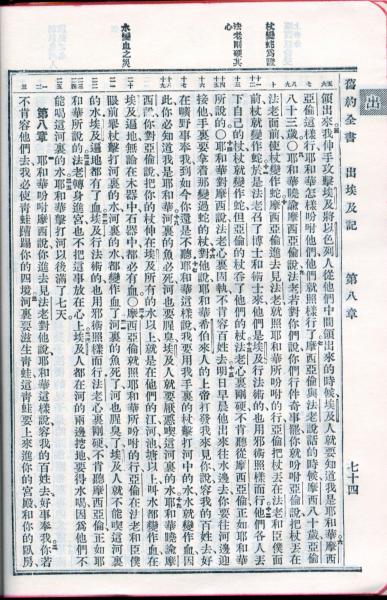 出
舊約全書 出埃及記 第八章 七十四
杖變蛇爲證
法老剛硬其心
水變血之災
領出來我伸手攻擊埃及將以色列人從他們中間領出來的時候埃及人就要知道我是耶和華摩西
亞倫這樣行耶和華怎樣吩咐他們他們就照樣行了摩西亞倫與法老說話的時候摩西八十歲亞倫
八十三歲○耶和華曉諭摩西亞倫說法老若對你們說你們行件奇事罷你就吩咐亞倫說把杖丟在
法老面前使杖變作蛇摩西亞倫進去見法老就照耶和華所吩咐的行亞倫把杖丟在法老和臣僕面
前杖就變作蛇於是法老召了博士和術士來他們是埃及行法術的也用邪術照樣而行他們各人丟
下自己的杖杖就變作蛇但亞倫的杖吞了他們的杖法老心裏剛硬不肯聽從摩西亞倫正如耶和華
所說的○耶和華對摩西說法老心裏固執不肯容百姓去明日早晨他出來往水邊去你要往河邊迎
接他手裏要拿着那變過蛇的杖對他說耶和華希伯來人的上帝打發我來見你說容我的百姓去好
在曠野事奉我到如今你還是不聽耶和華這樣說我要用我手裏的杖擊打河中的水水就變作血因
此你必知道我是耶和華河裏的魚必死河也要腥臭埃及人就要厭惡喫這河裏的水耶和華曉諭摩
西說你對亞倫說把你的杖伸在埃及所有的水以上就是在他們的江河池塘以上叫水都變作血在
埃及遍地無論在木器中石器中都必有血○摩西亞倫就照耶和華所吩咐的行亞倫在法老和臣僕
眼前舉杖擊打河裏的水河裏的水都變作血了河裏的魚死了河也腥臭了埃及人就不能喫這河裏
的水埃及遍地都有了血埃及行法術的也用邪術照樣而行法老心裏剛硬不肯聽摩西亞倫正如耶
和華所說的法老轉身進宮也不把這事放在心上埃及人都在河的兩邊挖地要得水喝因爲他們不
能喝這河裏的水耶和華擊打河以後滿了七天
第八章 耶和華吩咐摩西說你進去見法老對他說耶和華這樣說容我的百姓去好事奉我你若
不肯容他們去我必使青蛙蹧蹋你的四境河裏要滋生青蛙這青蛙要上來進你的宮殿和你的臥房